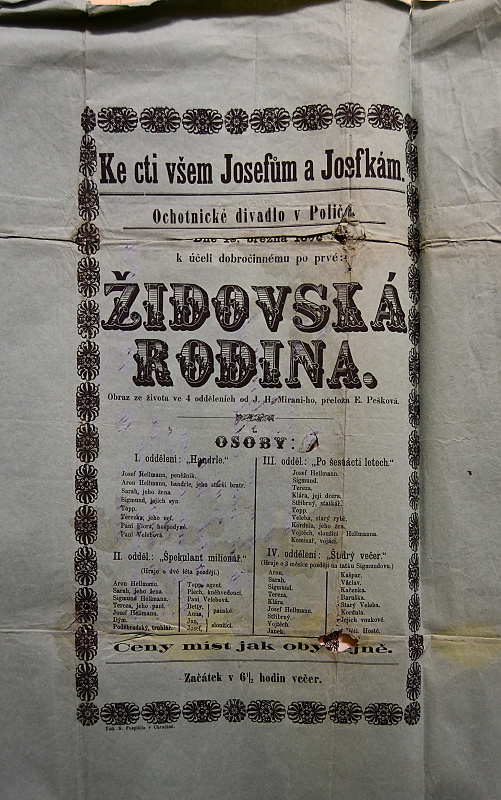 Ke cti všem Josefům a Josefkám.
Ochotnické divadlo v Poličce.
Dne 19. března
k účeli dobročinnému po prvé:
ŽIDOVSKÁ
RODINA.
Obraz ze života ve 4 odděleních od J. H. Mirani-ho, přeložila E. Pešková.
OSOBY:
I. oddělení: „Handrle.“
Josef Hellmann, peněžník.
Aron Hellmann, handrle, jeho starší bratr.
Sarah, jeho žena.
Sigmund, jejich syn.
Topp.
Terezka, jeho neť.
Paní Flora, hospodyně.
Paní Velebová.
II. odděl: „Špekulant milionář.“
(Hraje o dvě léta později.)
Aron Hellmann.
Sarah, jeho žena.
Sigmund Hellmann.
Tereza, jeho paní.
Josef Hellmann.
Dým.
Poděbradský, truhlář.
Topp, agent.
Plech, kněhvedoucí.
Paní Velebová.
Betty,
Anna, panské.
Jan,
Josef, sloužící.
III. odděl.: „Po šesnácti letech.“
Josef Hellmann.
Sigmund.
Tereza.
Klára, její dcera.
Stříbrný, statkář.
Topp.
Veleba, starý rybář.
Kordula, jeho žena.
Vojtěch, sloužící Hellmanna.
Komisař, vojáci.
IV. oddělení: „Štědrý večer.“
(Hraje o 3 měsíce později na statku Sigmundovu.)
Aron.
Sarah.
Sigmund.
Tereza.
Klára.
Josef Hellmann.
Stříbrný.
Vojtěch.
Janek.
Kašpar.
Václav.
Kačenka.
Baruška.
Starý Veleba.
Kordula.
Jejich vnukové.
Děti. Hosté.
Ceny míst jak obyčejně.
Začátek v 6 1/2 hodin večer.
Tisk S. Pospíšila v Chrudimi.